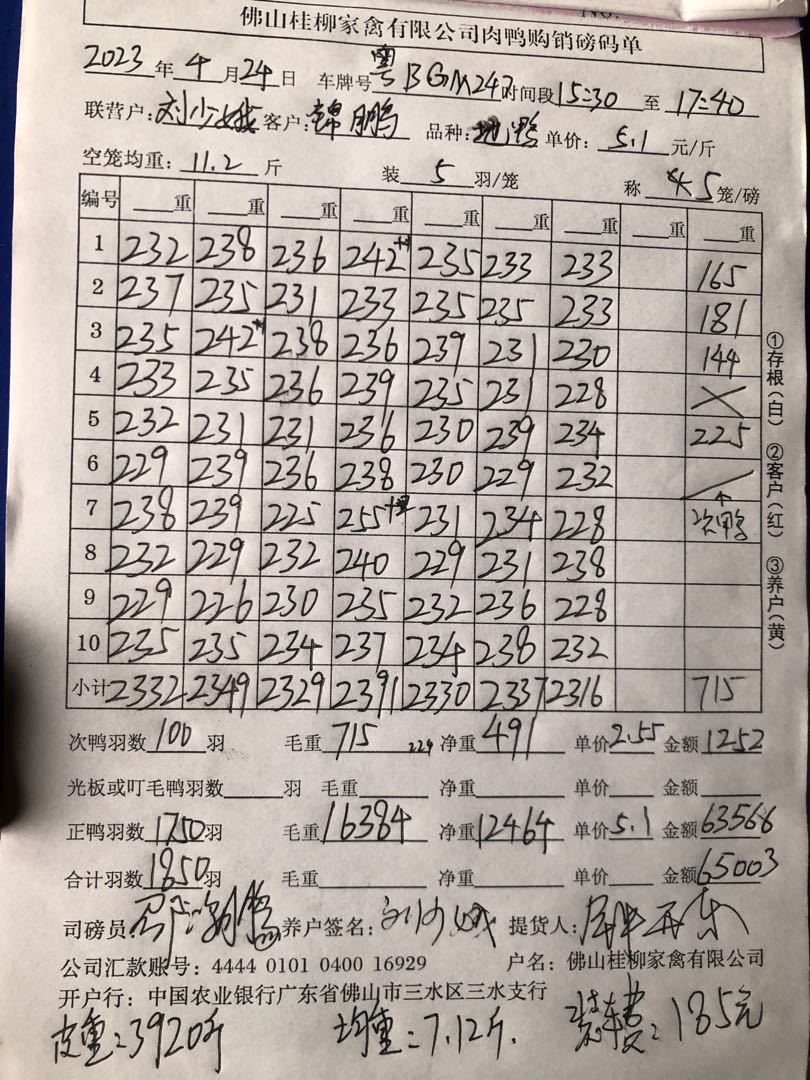 NO.
佛山桂柳家禽有限公司肉鸭购销磅码单
2023年4月24日 车牌号粤BGM247时间段15:30至17:40
联营户:刘少娥客户:锦鹏 品种:地鸭单价:5.1元/斤
空笼均重:11.2斤 装5羽/笼 称5笼/磅
编号 重 重 重 重 重 重 重 重 重
1 232 238 236 242 235 233 233 165
2 237 235 231 233 235 235 233 181
3 235 242 238 236 239 231 230 144
4 233 235 236 239 235 231 228
5 232 231 231 236 230 239 234 225
6 229 239 236 238 230 229 232
7 238 239 225 255 231 234 228 次鸭
8 232 229 232 240 229 231 238
9 229 226 230 235 232 236 228
10 235 235 234 237 234 238 232
小计 2332 2349 2329 2391 2330 2337 2316 715
①存根(白) ②客户(红) ③养户(黄)
次鸭羽数100羽 毛重715 224 净重491 单价2.55 金额1252
光板或叮毛鸭羽数 羽 毛重 净重 单价 金额
正鸭羽数1750羽 毛重16384 净重12464 单价5.1 金额63566
合计羽数1850羽 毛重 净重 单价 金额65003
司磅员: 养户签名:刘少娥 提货人:
公司汇款账号:4444 0101 0400 16929 户名:佛山桂柳家禽有限公司
开户行:中国农业银行广东省佛山市三水区三水支行
皮重:3920斤 均重:7.12斤. 装车费:185元